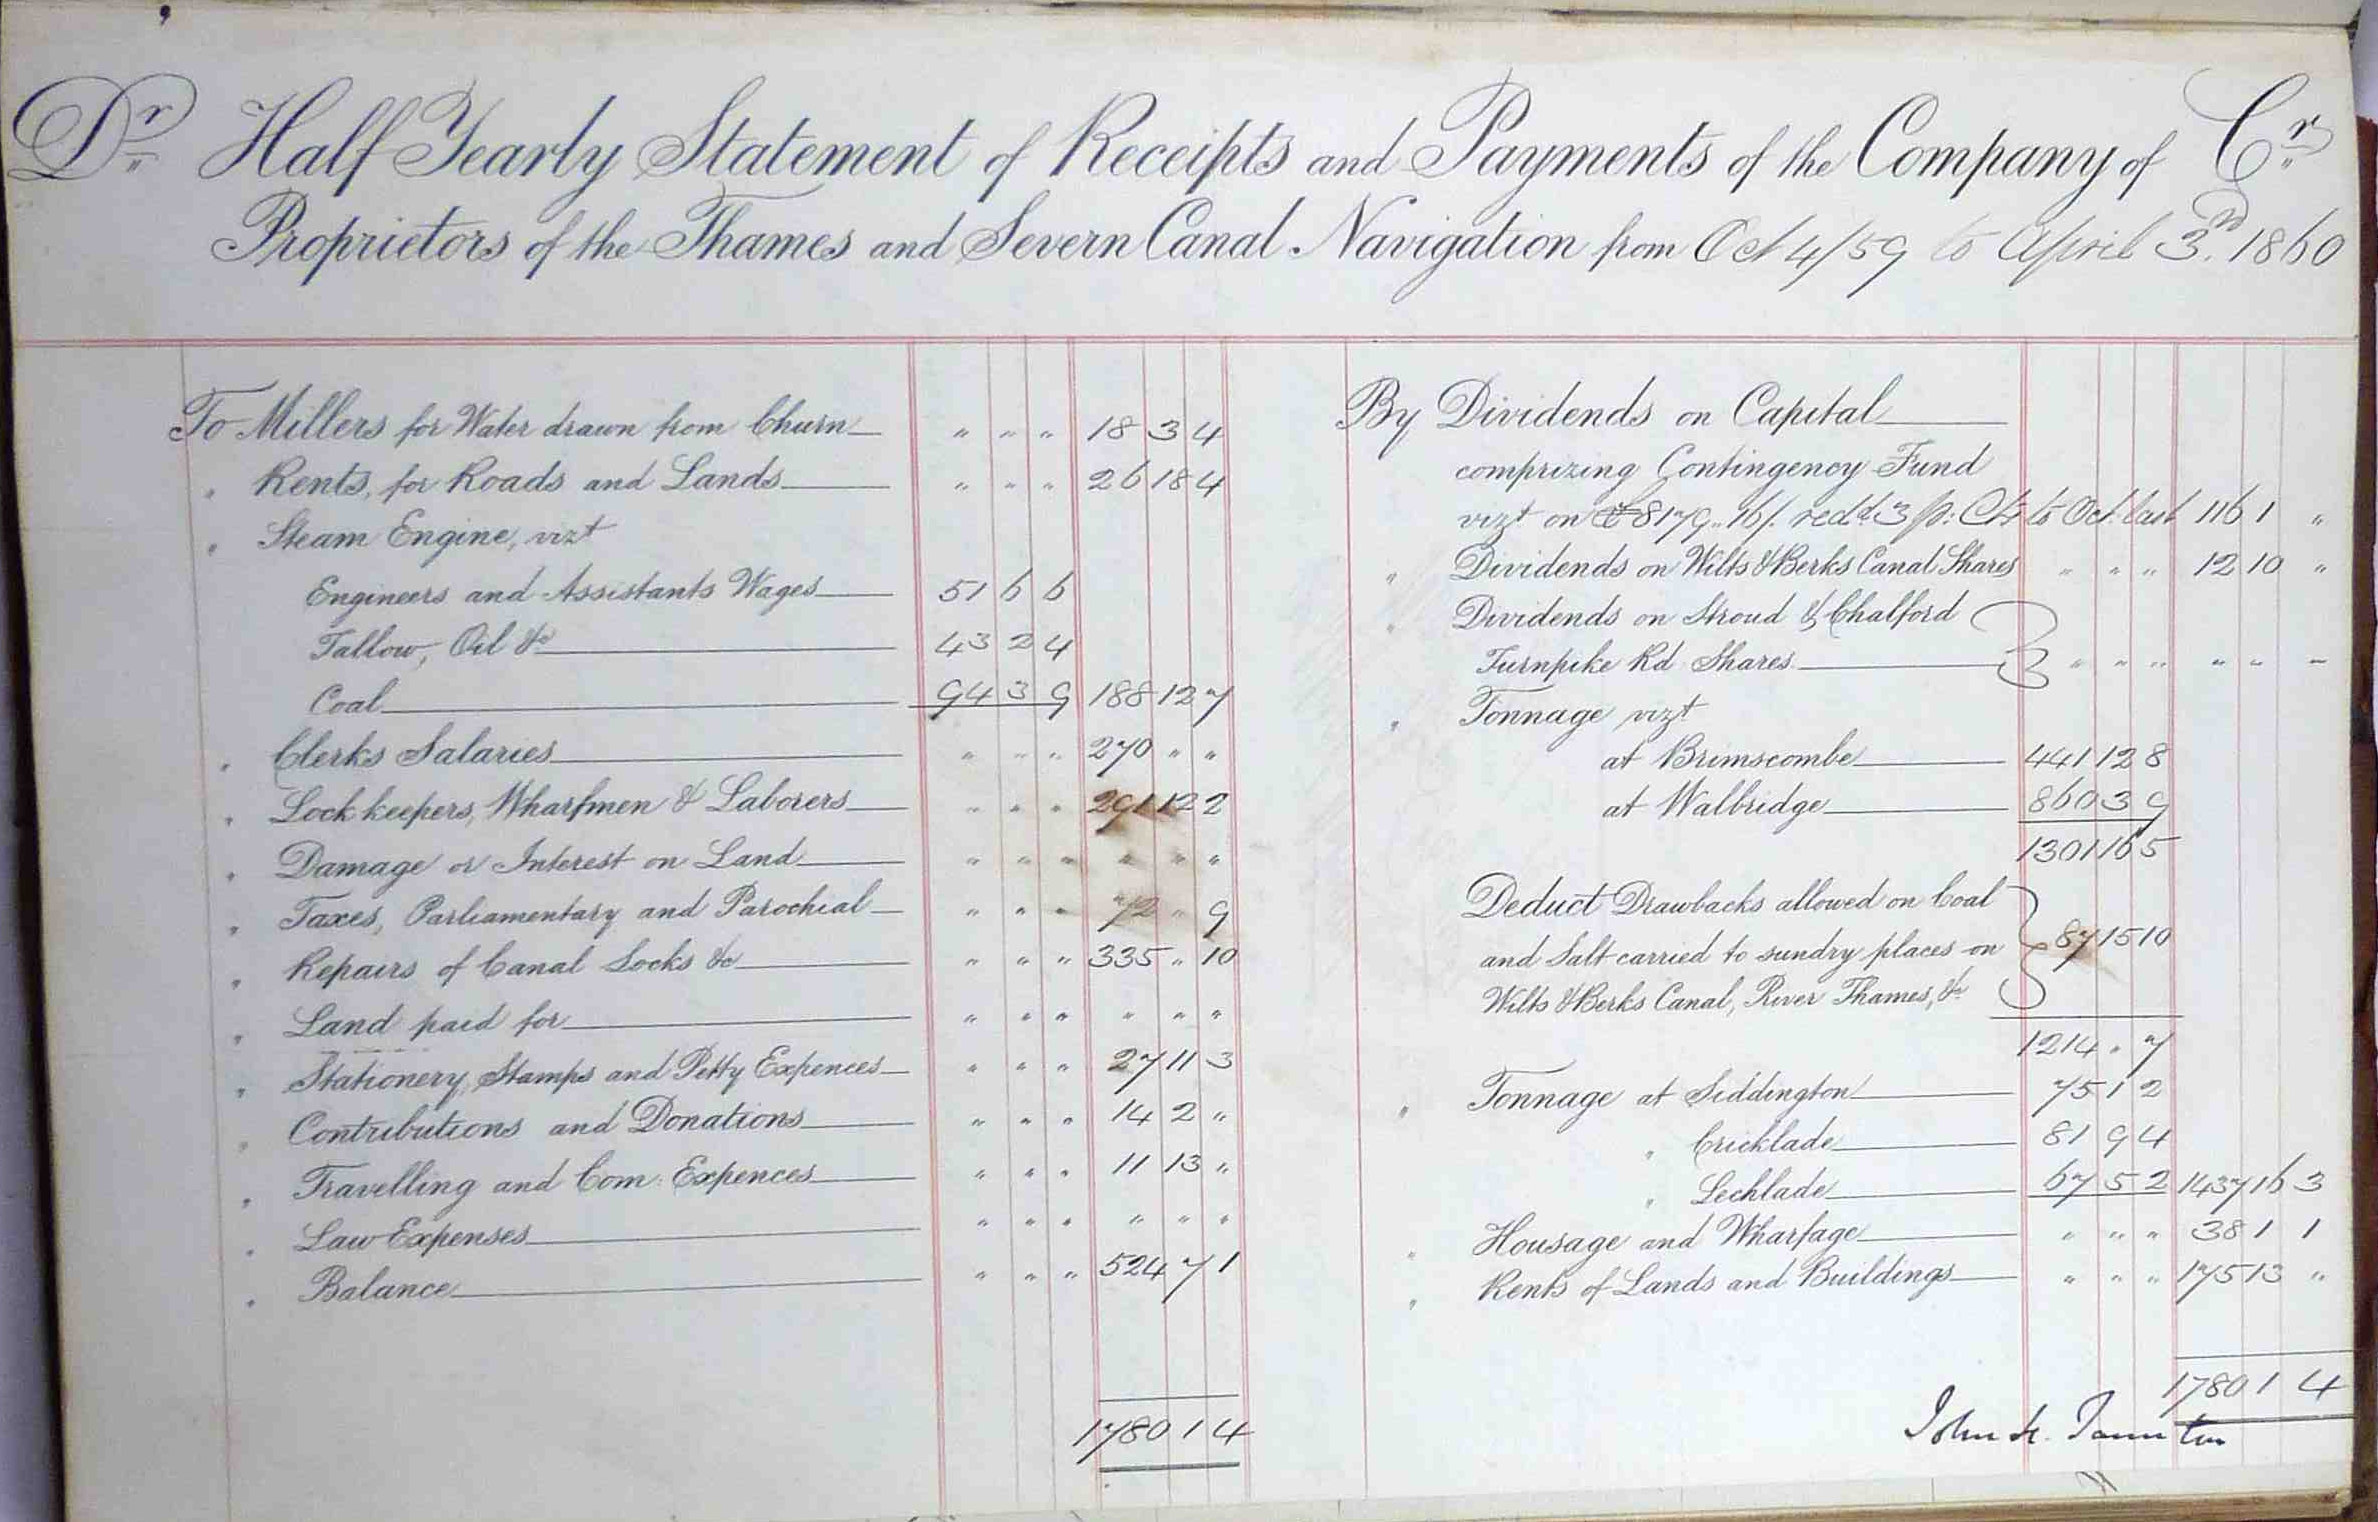 Dr Half Yearly Statement of Receipts and Payments of the Company of Cr
Proprietors of the Thames and Severn Canal Navigation from Oct 4/59 to April 3rd 1860
To Millers for Water drawn from Churn " " " 18 3 4
" Rents, for Roads and Lands " " " 26 18 4
" Steam Engine, vizt
Engineers and Assistants Wages 51 6 6
Tallow, Oil &c 43 2 4
Coal 94 3 9 188 12 7
" Clerks Salaries " " " 270 " "
" Lock keepers, Wharfmen & Laborers " " " 291 12 2
" Damage or Interest on Land " " " " " "
" Taxes, Parliamentary and Parochial " " " 72 " 9
" Repairs of Canal Locks &c " " " 335 " 10
" Land paid for " " " " " "
" Stationery, Stamps and Petty Expences " " " 27 11 3
" Contributions and Donations " " " 14 2 "
" Travelling and Com: Expences " " " 11 13 "
" Law Expenses " " " " " "
" Balance " " " 524 7 1
1780 1 4
By Dividends on Capital
comprizing Contingency Fund
vizt on £8179.. 16/. redd 3 p: Ct to Oct. last 116 1 "
" Dividends on Wilts & Berks Canal Shares " " " 12 10 "
" Dividends on Stroud & Chalford
Turnpike Rd Shares " " " " " "
" Tonnage vizt
at Brimscombe 441 12 8
at Walbridge 860 3 9
1301 16 5
Deduct Drawbacks allowed on Coal
and Salt carried to sundry places on 87 15 10
Wilts & Berks Canal, River Thames, &c
1214 " 7
" Tonnage at Siddington 75 1 2
" Cricklade 81 9 4
" Lechlade 67 5 2 1437 16 3
" Housage and Wharfage " " " 38 1 1
" Rents of Lands and Buildings " " " 175 13 "
1780 1 4
John H. Taunton